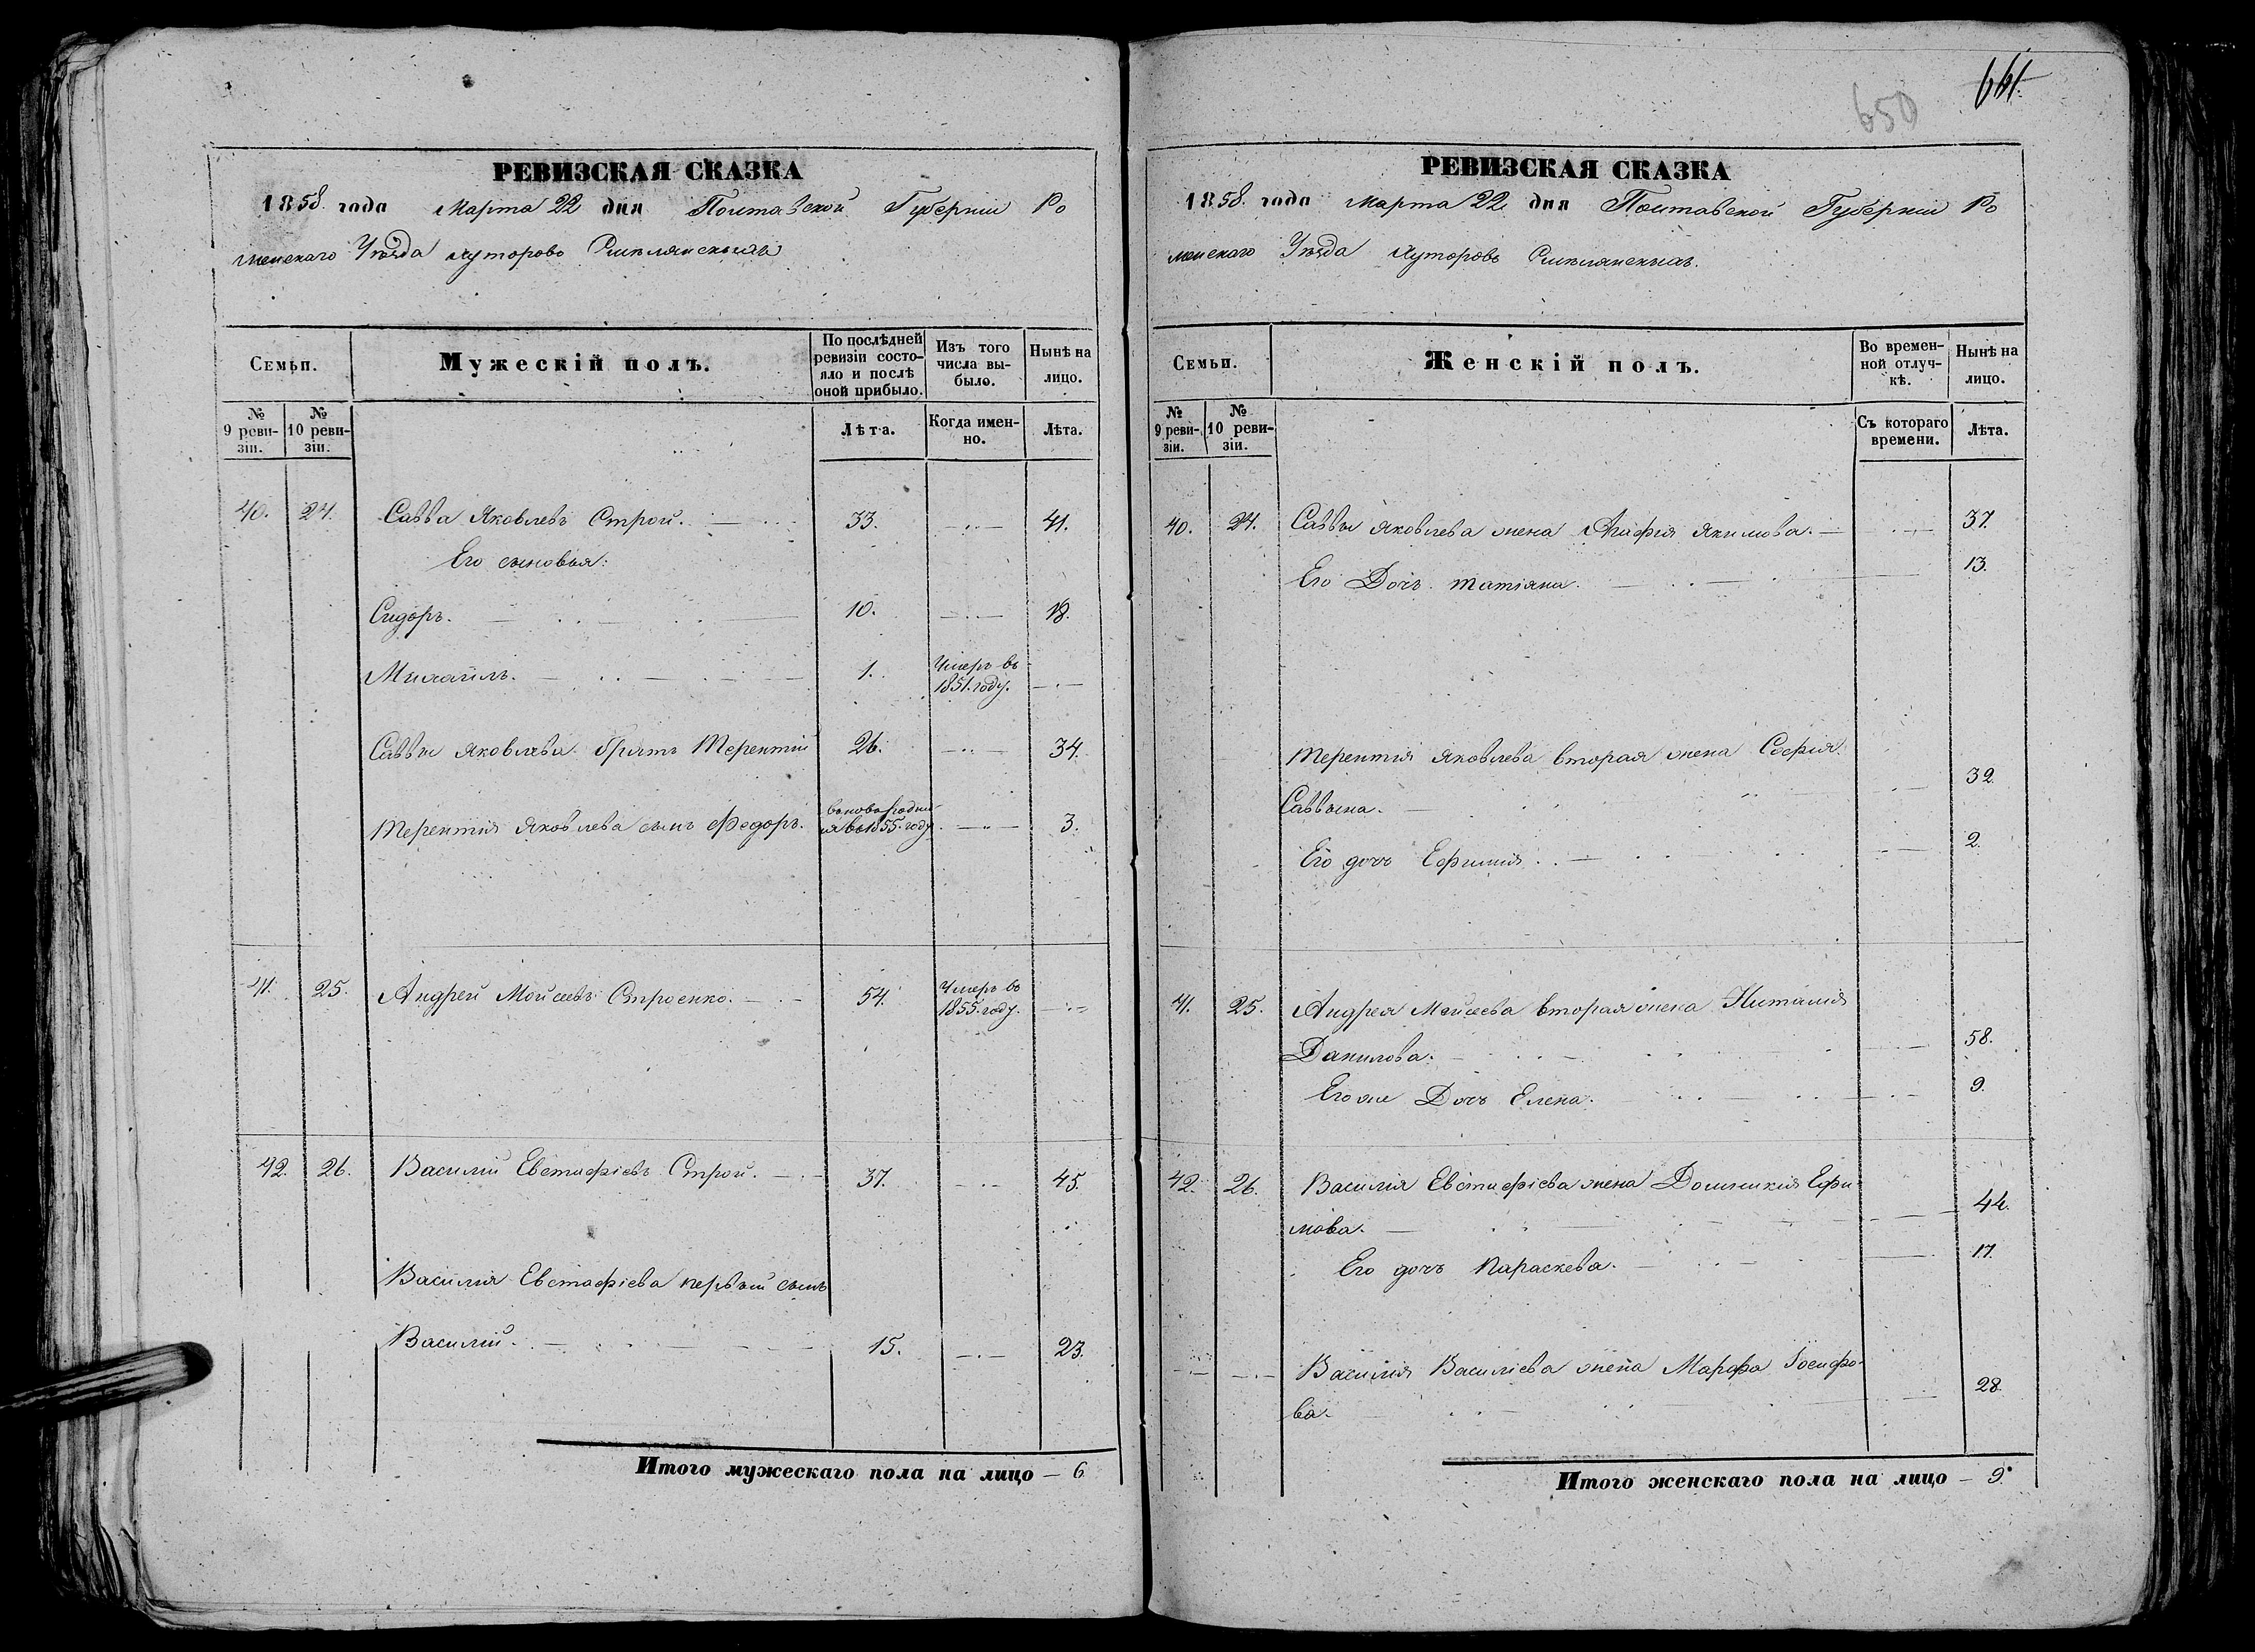 661.
650
РЕВИЗСКАЯ СКАЗКА
1858. года Марта 22 дня Полтавской Губерніи Ро
менскаго Уѣзда хуторовъ Смѣлянскихъ
Семьи.
Мужескій полъ.
По послѣдней ревизіи состояло и послѣ оной прибыло.
Изъ того числа выбыло.
Нынѣ на лицо.
№ 9 ревизіи.
№ 10 ревизіи.
Лѣта.
Когда именно.
Лѣта.
40. 24. Савва Яковлевъ Строй. 33. 41.
Его сыновья:
Сидоръ. 10. 18.
Михаилъ. 1. Умеръ въ 1851. году.
Саввы Яковлева братъ Терентій 26. 34.
Терентія Яковлева сынъ Федоръ. 1855. году 3.
41. 25. Андрей Мойсеевъ Строенко. 54. Умеръ въ 1855. году.
42. 26. Василій Евстафіевъ Строй. 37. 45.
Василія Евстафіева первый сынъ
Василій. 15. 23.
Итого мужескаго пола на лицо 6
РЕВИЗСКАЯ СКАЗКА
1858. года Марта 22 дня Полтавской Губерніи Ро
менскаго Уѣзда Хуторовъ Смѣлянскихъ.
Семьи.
Женскій полъ.
Во временной отлучкѣ.
Нынѣ на лицо.
№ 9 ревизіи.
№ 10 ревизіи.
Съ котораго времени.
Лѣта.
40. 24. Саввы Яковлева жена Агафія Якимова. 37.
Его Дочь Татіяна. 13.
Терентія Яковлева вторая жена Софія
Саввина. 32.
Его дочь Ефимія. 2.
41. 25. Андрея Мойсеева вторая жена Наталія
Данилова. 58.
Его же Дочь Елена. 9.
42. 26. Василія Евстафіева жена Домникія Ефи
мова. 44.
Его дочь Параскева. 17.
Василія Василіева жена Марфа Іосифо
ва. 28.
Итого женскаго пола на лицо 9.